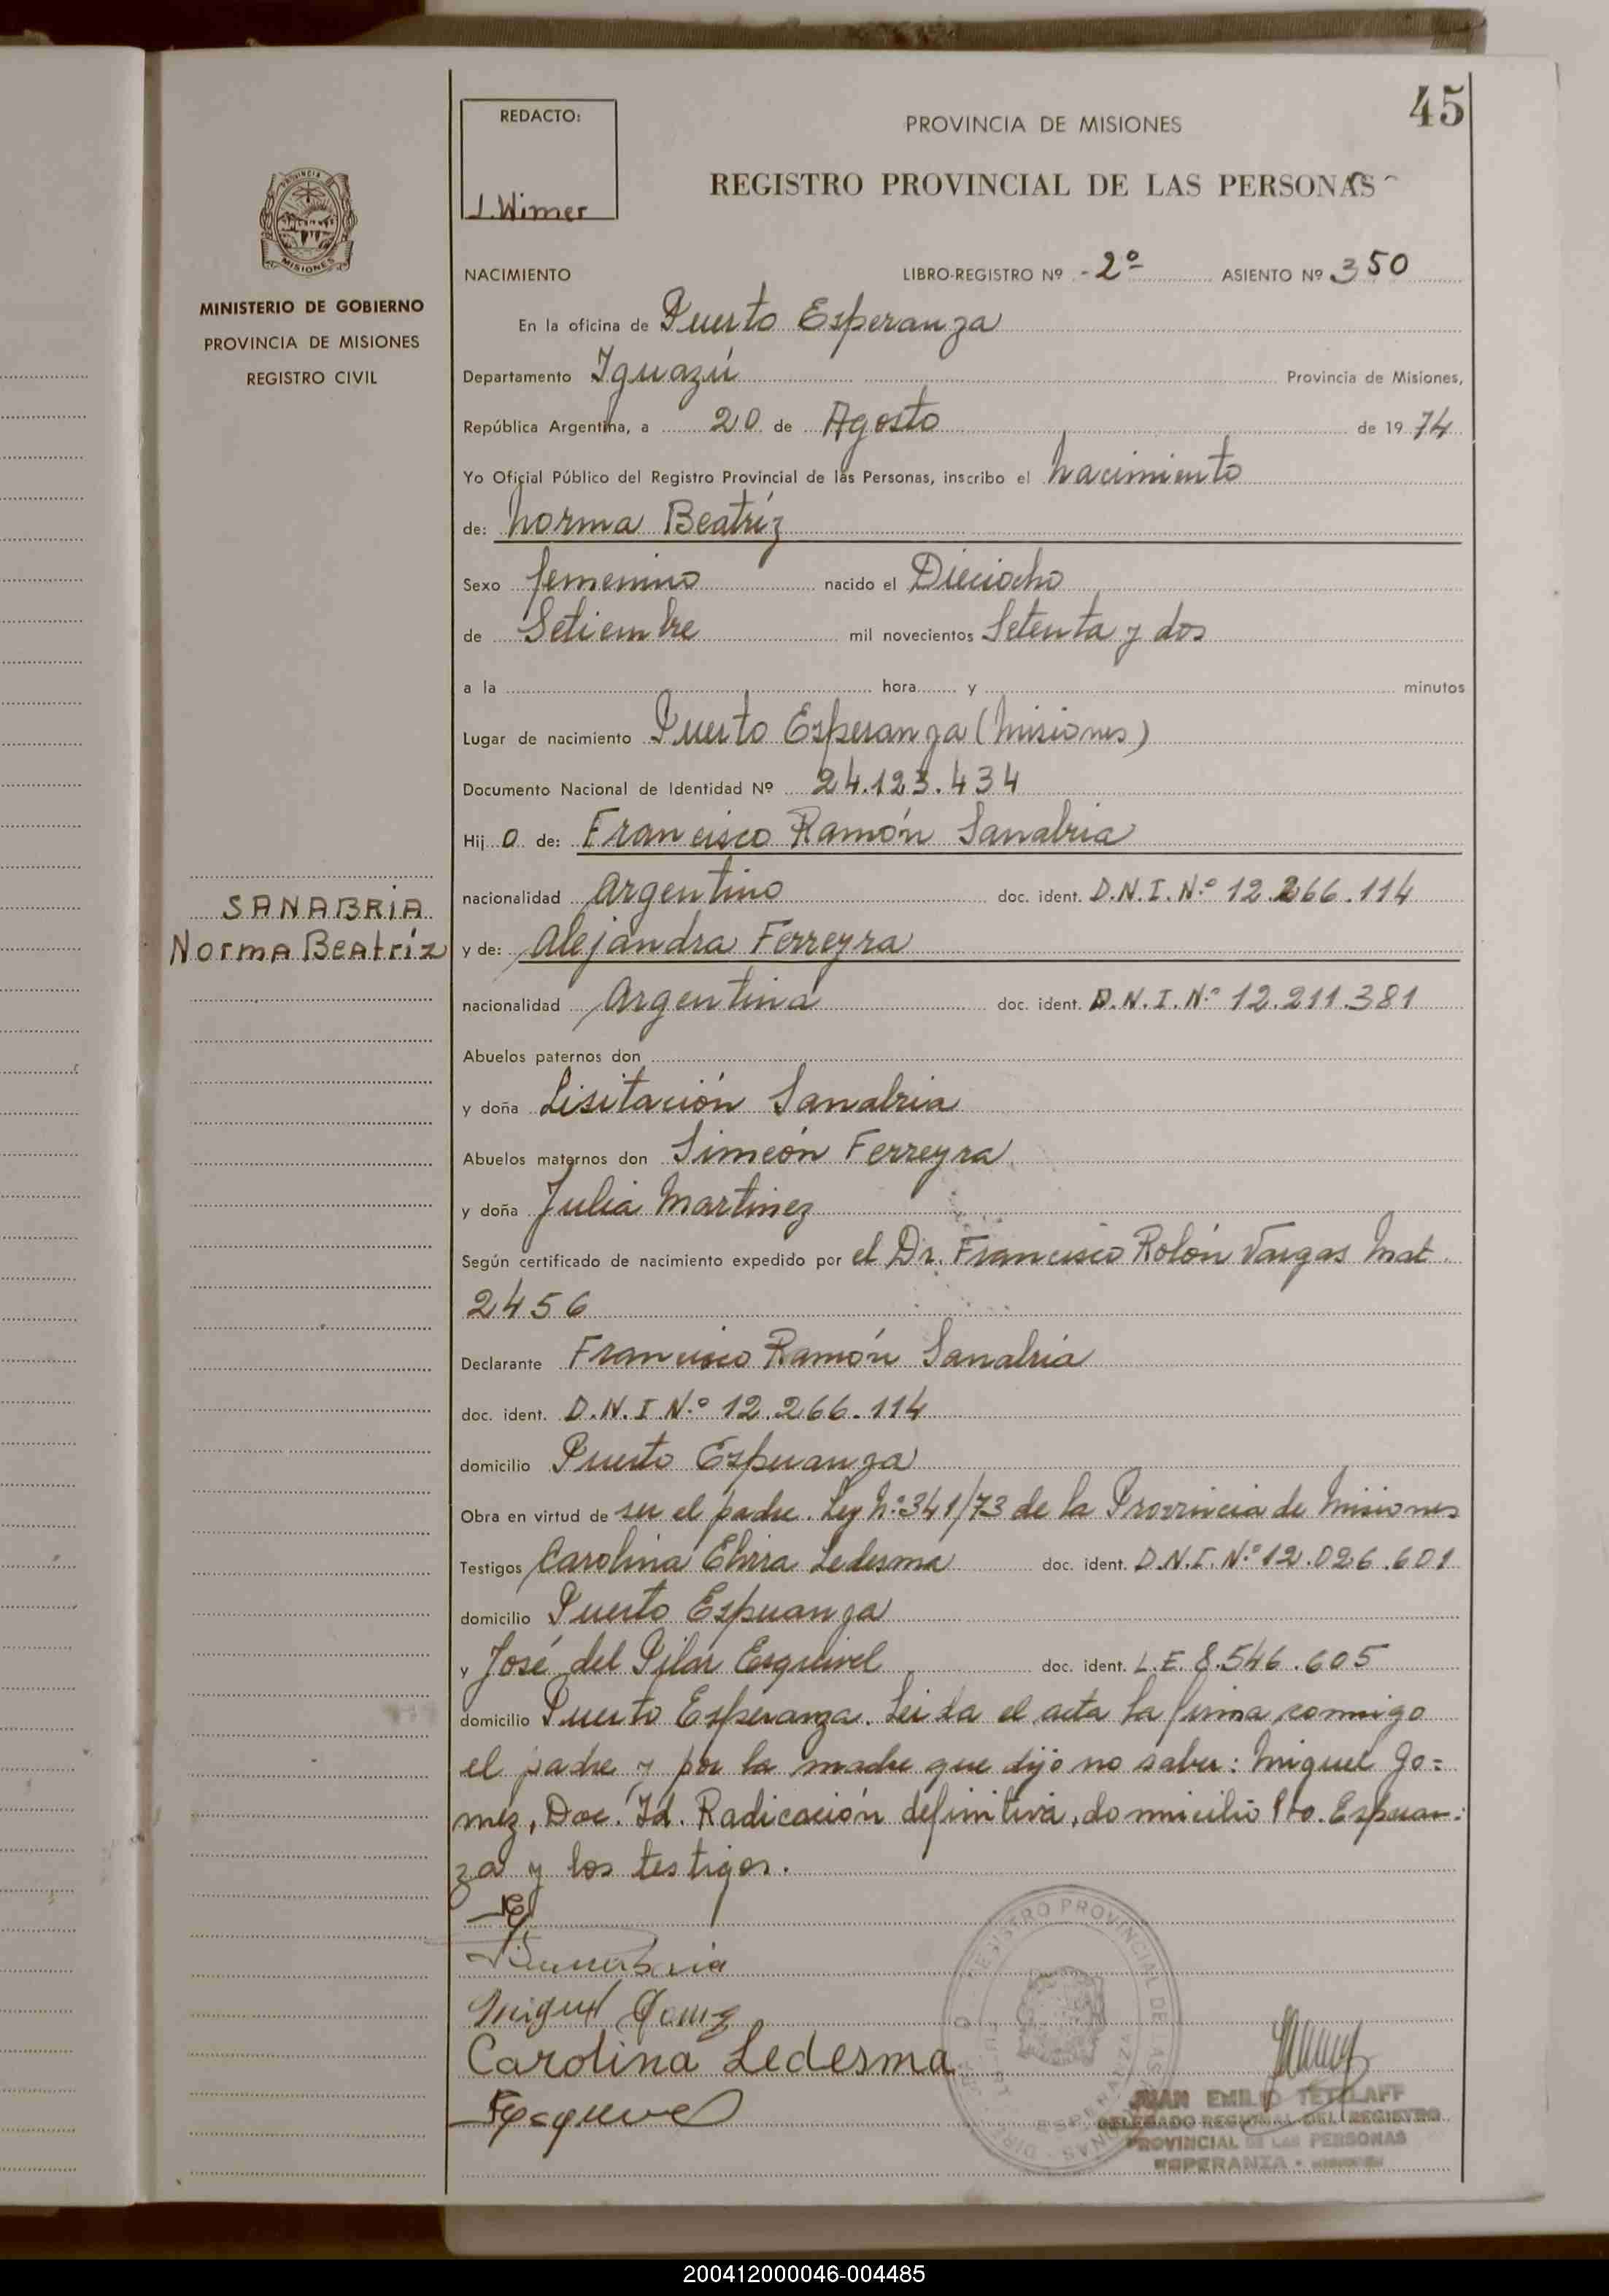 45
REDACTO:
J. Wimer
PROVINCIA DE MISIONES
REGISTRO PROVINCIAL DE LAS PERSONAS
PROVINCIA
MISIONES
MINISTERIO DE GOBIERNO
PROVINCIA DE MISIONES
REGISTRO CIVIL
NACIMIENTO LIBRO-REGISTRO Nº - 2º ASIENTO Nº 350
En la oficina de Puerto Esperanza
Departamento Iguazú Provincia de Misiones,
República Argentina, a 20 de Agosto de 19 74
Yo Oficial Público del Registro Provincial de las Personas, inscribo el nacimiento
de: Norma Beatríz
Sexo femenino nacido el Dieciocho
de Setiembre mil novecientos Setenta y dos
a la hora y minutos
Lugar de nacimiento Puerto Esperanza (Misiones)
Documento Nacional de Identidad Nº 24.123.434
Hij a de: Francisco Ramón Sanabria
nacionalidad Argentino doc. ident. D.N.I. N.º 12.266.114
SANABRIA
Norma Beatríz
y de: Alejandra Ferreyra
nacionalidad Argentina doc. ident. D.N.I. N.º 12.211.381
Abuelos paternos don
y doña Lisitación Sanabria
Abuelos maternos don Simeón Ferreyra
y doña Julia Martinez
Según certificado de nacimiento expedido por el Dr. Francisco Rolón Vargas Mat
2456
Declarante Francisco Ramón Sanabria
doc. ident. D.N.I N.º 12.266.114
domicilio Puerto Esperanza
Obra en virtud de ser el padre. Ley N.º 341/73 de la Provincia de Misiones
Testigos Carolina Elvira Ledesma doc. ident. D.N.I. N.º 12.026.601
domicilio Puerto Esperanza
y José del Pilar Esquivel doc. ident. L.E. 8.546.605
domicilio Puerto Esperanza. Leida el acta la firma conmigo
el padre y por la madre que dijo no saber: Miguel Go=
mez, Doc. Id. Radicación definitiva, domicilio Pto. Esperan:
za y los testigos.
Sanabria
Miguel Gomez
Carolina Ledesma
Esquivel
REGISTRO PROVINCIAL DE LAS
ESPERANZA
JUAN EMILIO TETZLAFF
DELEGADO REGIONAL DEL REGISTRO
PROVINCIAL DE LAS PERSONAS
ESPERANZA - MISIONES
200412000046-004485